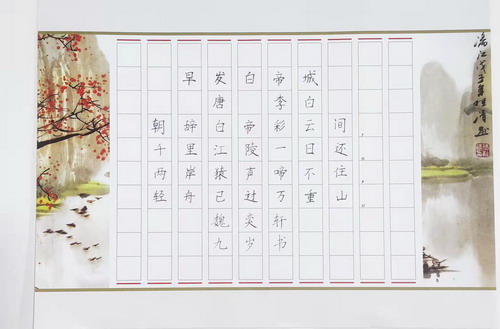 早发白帝城
唐李白
朝辞白帝彩云间
千里江陵一日还
两岸猿声啼不住
轻舟已过万重山
魏奕轩
九岁书
漓江